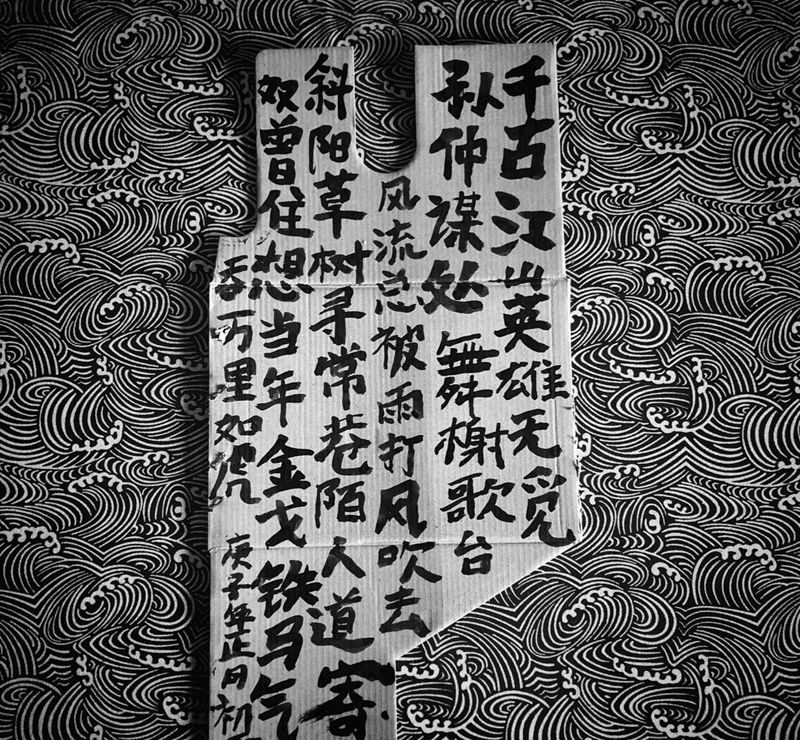 千古江山英雄无觅
孙仲谋处舞榭歌台
风流总被雨打风吹去
斜阳草树寻常巷陌人道寄
奴曾住想当年金戈铁马气
吞万里如虎
庚子年正月初